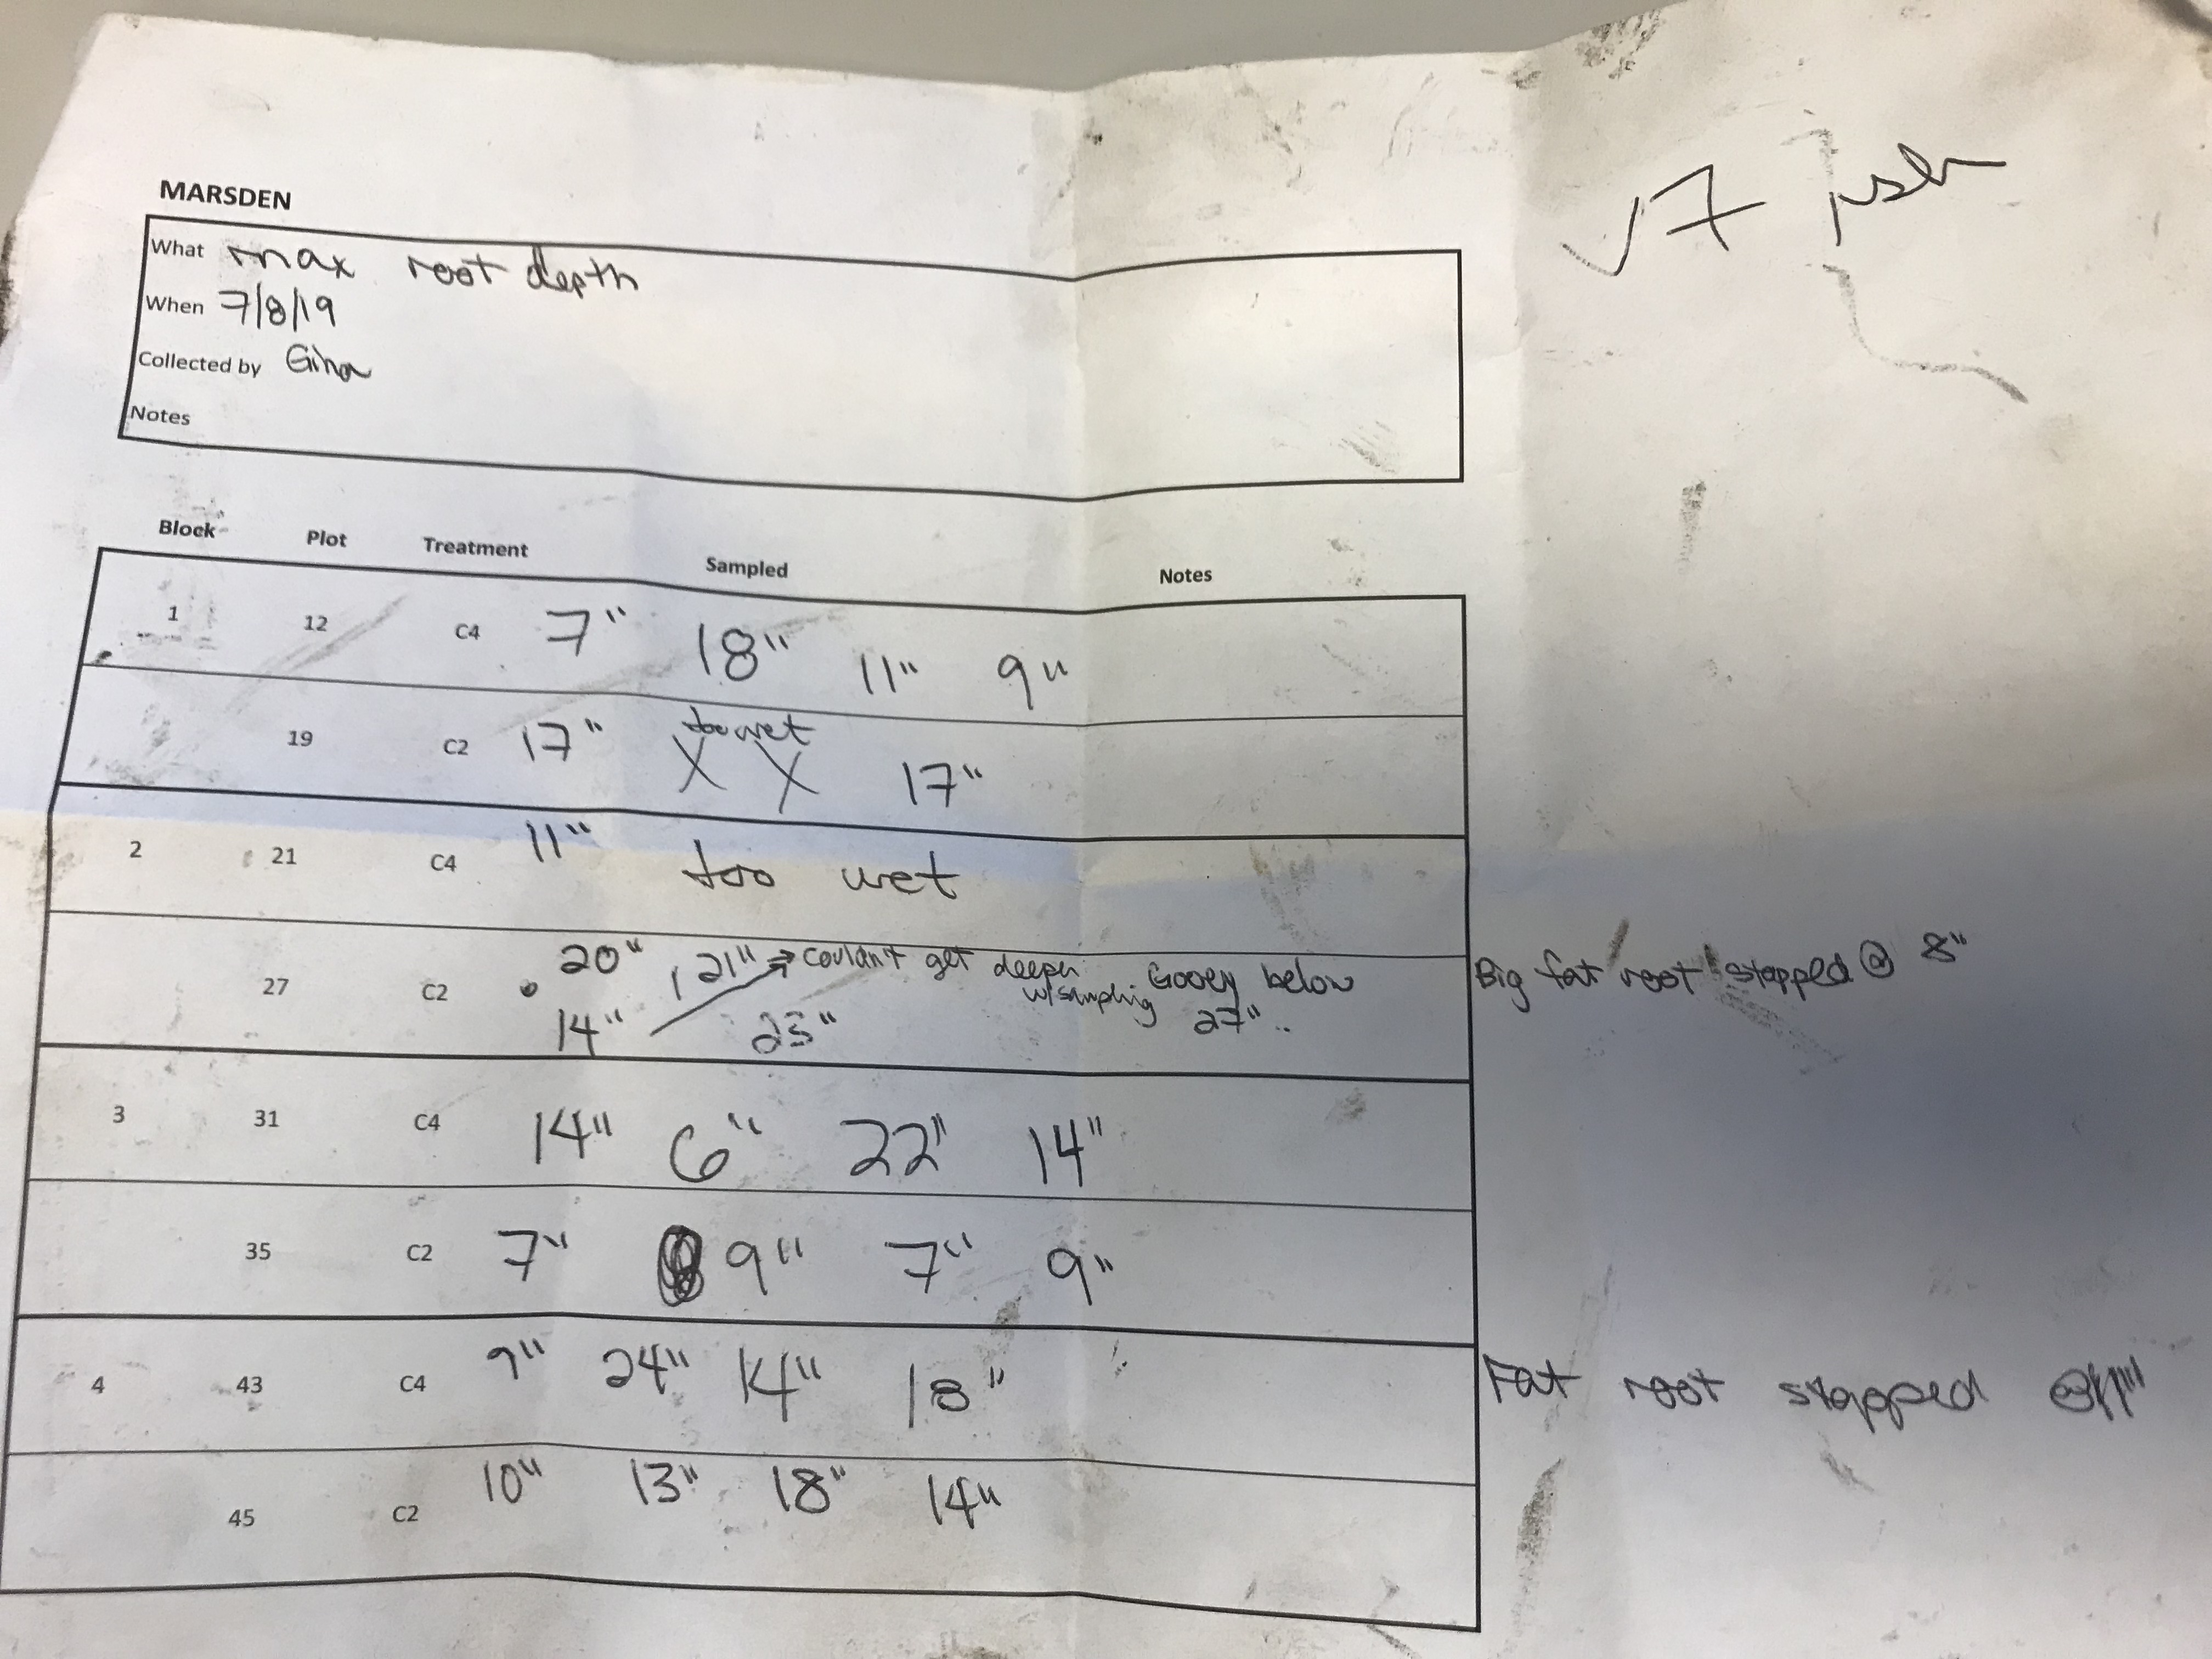 √7
MARSDEN
What max root depth
When 7/8/19
Collected by Gina
Notes
Block Plot Treatment Sampled Notes
1 12 C4 7" 18" 11" 9"
too wet
19 C2 17" X X 17"
2 21 C4 11" too wet
20" , 21" → couldn't get deeper w/sampling Gooey below 27" .. Big fat root stopped @ 8"
27 C2
14" 23"
3 31 C4 14" 6" 22" 14"
35 C2 7" 9" 7" 9"
4 43 C4 9" 24" 14" 18" Fat root stopped @11"
45 C2 10" 13" 18" 14"